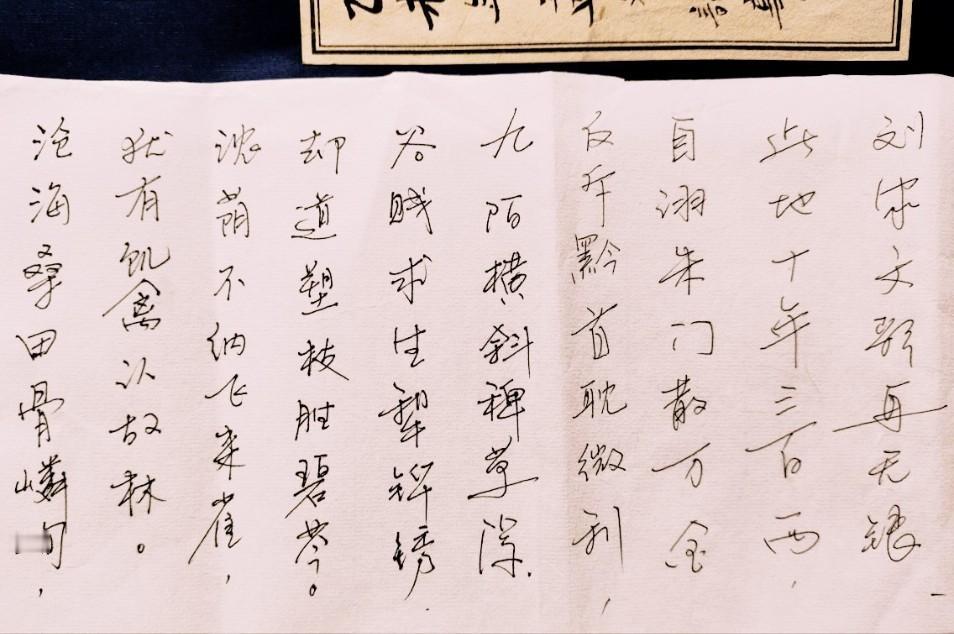 刘家文歌再无银
此地十年三百两，
自诩朱门散万金
反斥黔首耽微利，
九陌横斜稗草深.
谷贱求生犁铧
却道塑枝胜碧。
浓荫不纳飞来雀，
犹有饥禽认故林。
沧海桑田骨嶙峋，